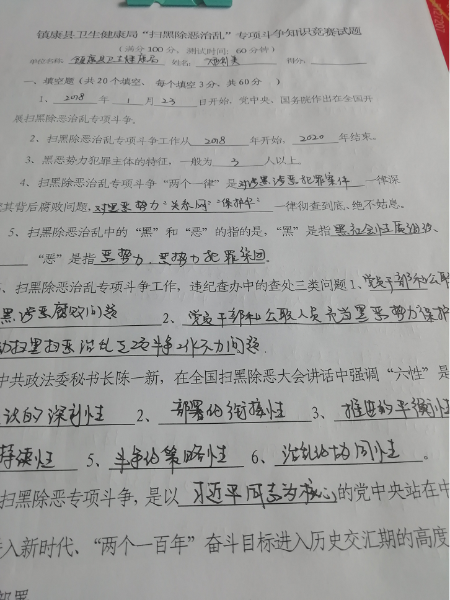 镇康县卫生健康局“扫黑除恶治乱”专项斗争知识竞赛试题
（满分100分，测试时间：60分钟）
单位名称：镇康县卫生健康局 姓名： 得分：
一、填空题（共20个填空、每个填空3分、共60分 ）
1、2018年1月23日开始，党中央、国务院作出在全国开
展扫黑除恶治乱专项斗争。
2、扫黑除恶治乱专项斗争工作从2018年开始，2020年结束。
3、黑恶势力犯罪主体的特征，一般为3人以上。
4、扫黑除恶治乱专项斗争“两个一律”是对涉黑涉恶犯罪案件一律深
其背后腐败问题，对黑恶势力“关系网”“保护伞”一律彻查到底、绝不姑息。
5、扫黑除恶治乱中的“黑”和“恶”的指的是，“黑”是指黑社会性质组织、
“恶”是指恶势力、恶势力犯罪集团.
、扫黑除恶治乱专项斗争工作，违纪查办中的查处三类问题1、党员干部和公职
黑涉恶腐败问题 2、党员干部和公职人员充当黑恶势力保护
扫黑除恶治乱专项斗争工作不力问题.
中共政法委秘书长陈一新，在全国扫黑除恶大会讲话中强调“六性”是
识的深刻性 2、部署的衔接性 3、推进的平衡性
持续性 5、斗争的策略性 6、治乱的协同性。
扫黑除恶专项斗争，是以习近平同志为核心的党中央站在中
进入新时代、“两个一百年”奋斗目标进入历史交汇期的高度
部署